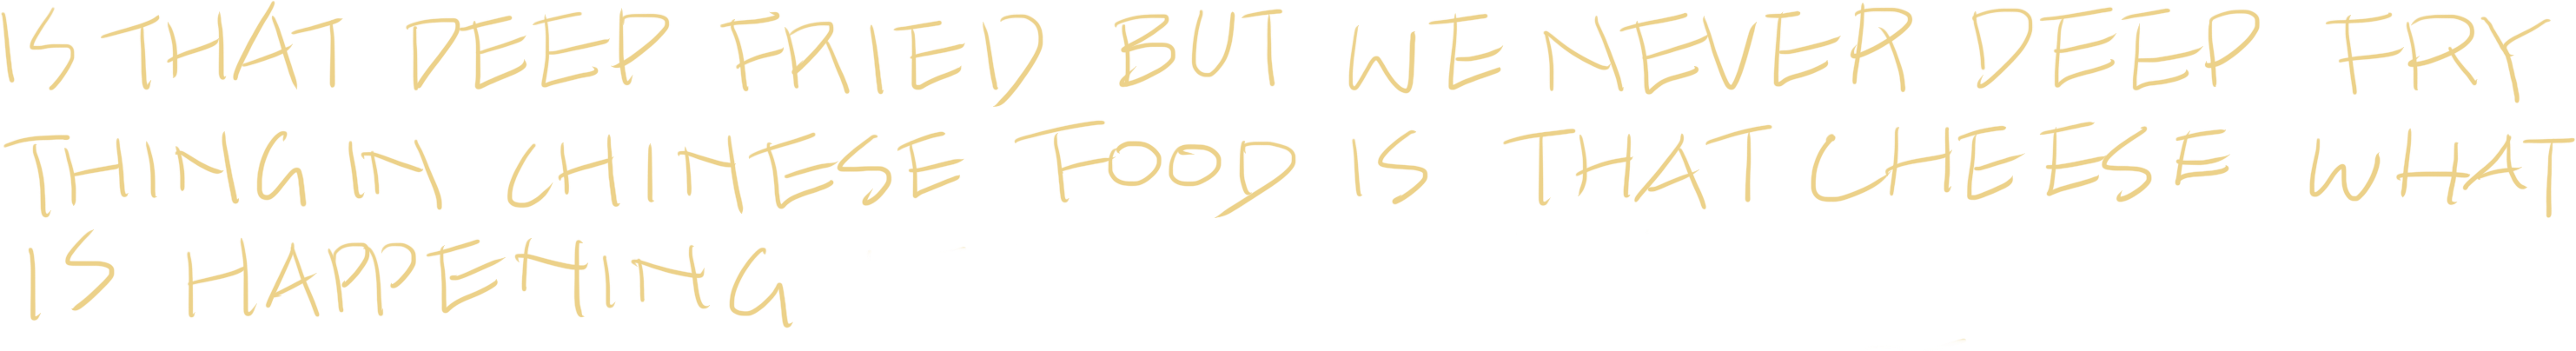 IS THAT DEEP FRIED BUT WE NEVER DEEP FRY
THING IN CHINESE FOOD IS THAT CHEESE WHAT
IS HAPPENING